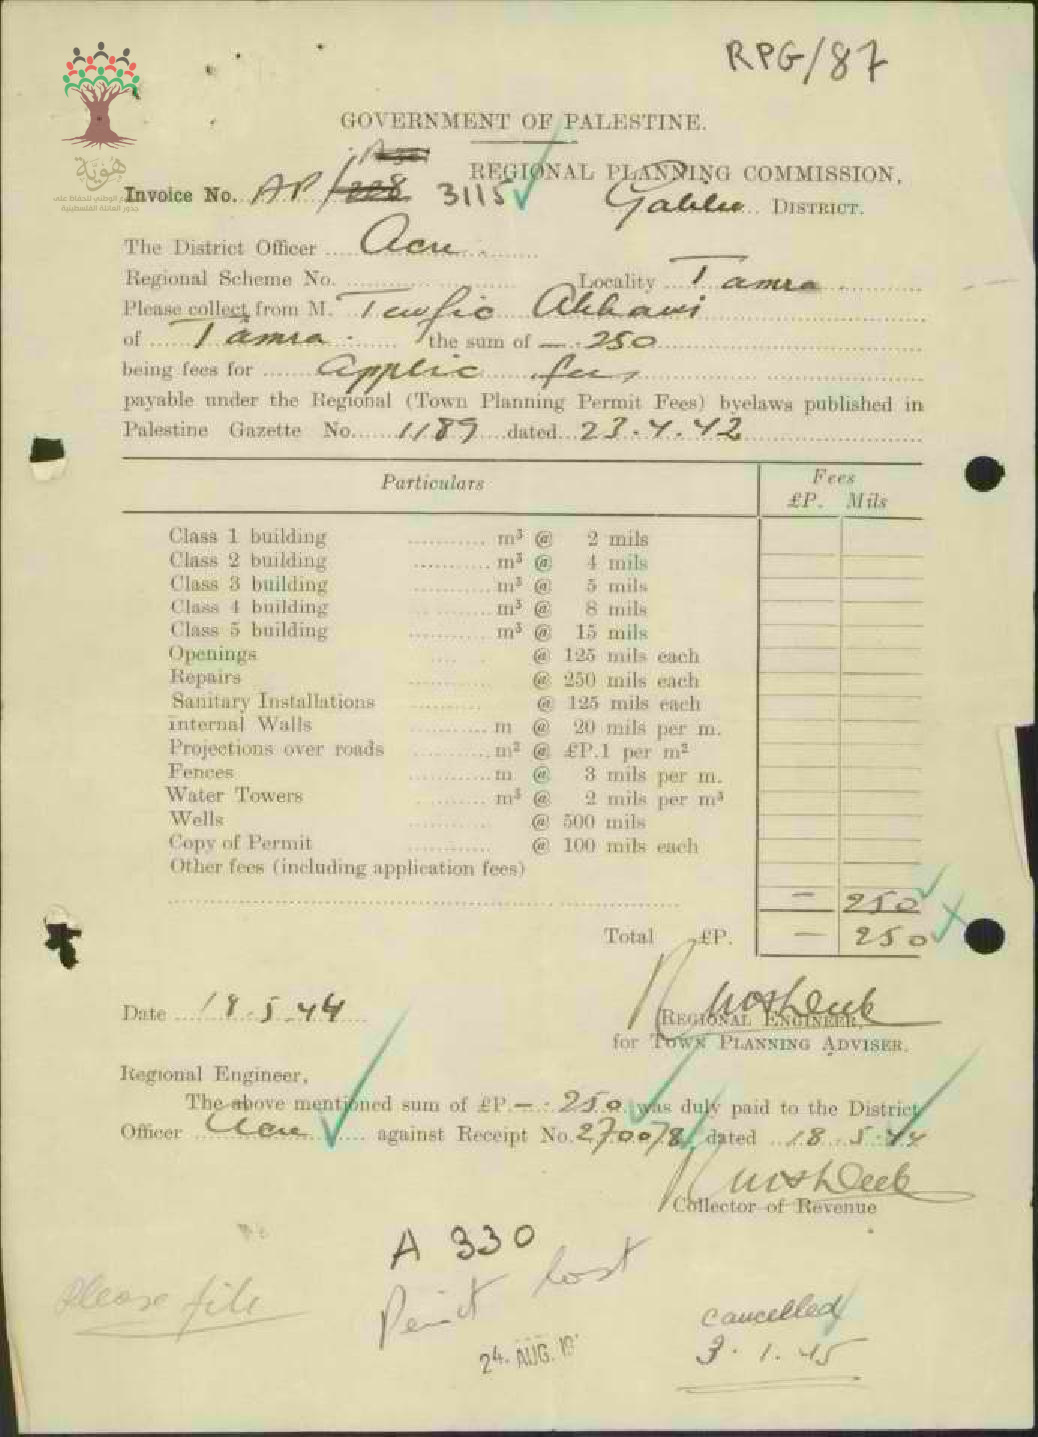 RPG/87
GOVERNMENT OF PALESTINE.
REGIONAL PLANNING COMMISSION,
Invoice No. AP/ 3115
Galilee DISTRICT.
هُويَّة
The District Officer Acre
Regional Scheme No. Locality Tamra
Please collect from M. Tewfic
of Tamra the sum of —.250
being fees for Applic fees
payable under the Regional (Town Planning Permit Fees) byelaws published in
Palestine Gazette No. 1189 dated 23.4.42
Particulars Fees
£P. Mils
Class 1 building m³ @ 2 mils
Class 2 building m³ @ 4 mils
Class 3 building m³ @ 5 mils
Class 4 building m³ @ 8 mils
Class 5 building m³ @ 15 mils
Openings @ 125 mils each
Repairs @ 250 mils each
Sanitary Installations @ 125 mils each
Internal Walls m @ 20 mils per m.
Projections over roads m² @ £P.1 per m²
Fences m @ 3 mils per m.
Water Towers m³ @ 2 mils per m³
Wells @ 500 mils
Copy of Permit @ 100 mils each
Other fees (including application fees)
— 250
Total £P. — 250
Date 18.5.44
REGIONAL ENGINEER,
for TOWN PLANNING ADVISER.
Regional Engineer,
The above mentioned sum of £P —.250 was duly paid to the District
Officer Acre against Receipt No. 270078 dated 18.5.44
Collector of Revenue
A 330
Please file
Permit lost
cancelled
24. AUG. 19
3.1.45